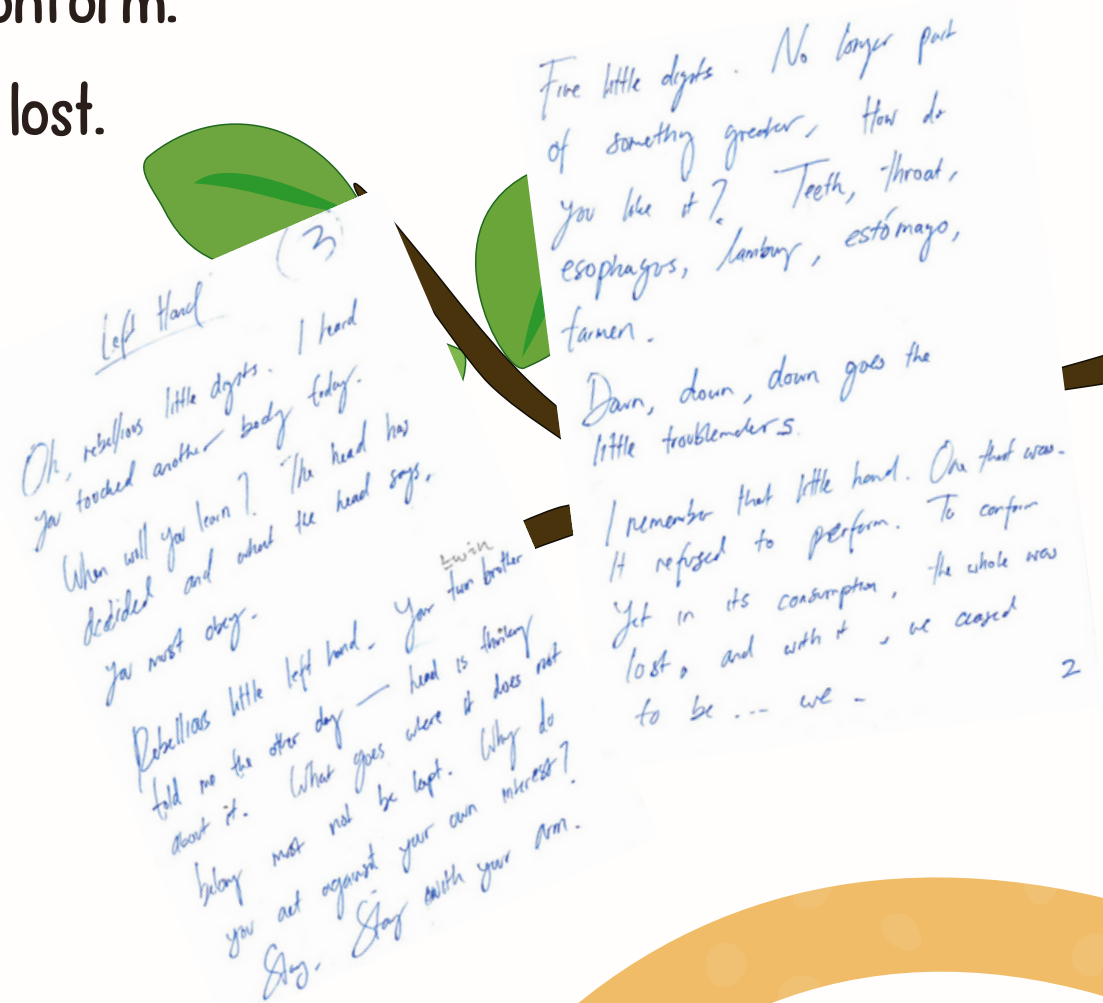 onform.
lost.
(3)
Left Hand
Oh, rebellious little digits. I heard
you touched another body today.
When will you learn? The head has
decided and what the head says,
you must obey.
Rebellious little left hand. Your twin brother
twin
told me the other day — head is thinking
about it. What goes where it does not
belong must not be kept. Why do
you act against your own interest?
Stay. Stay with your arm.
Five little digits. No longer part
of something greater, How do
you like it? Teeth, throat,
esophagus, lambung, estómago,
farmen.
Down, down, down goes the
little troublemakers.
I remember that little hand. One that was.
It refused to perform. To conform
Yet in its consumption, the whole was
lost, and with it, we ceased
to be ... we -
2